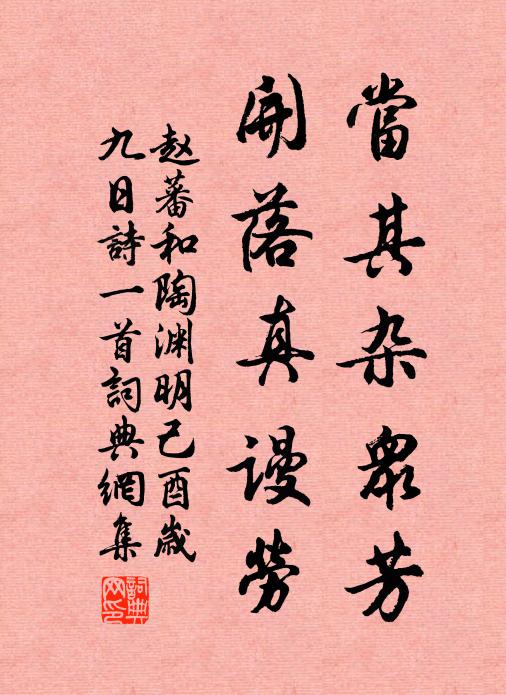 當其杂眾芳
開落真谩勞
赵蕃和陶渊明己酉歲
九日詩一首詞典網集
詞典
网印